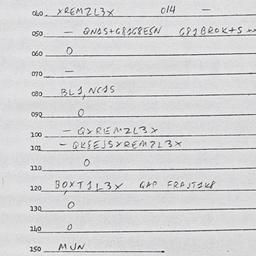 040. XREMZL3X 014 —
050 — QNAS+G81G8ESN G81BROK+S
060 0
070 —
080 BL1,NCAS
090 0
100 — QXREMZL3X
101 — QKSEJSXREMZL3X
110 0
120 BOXT1L3X GAP FRAJT1K8
130 0
140 0
150 MJN